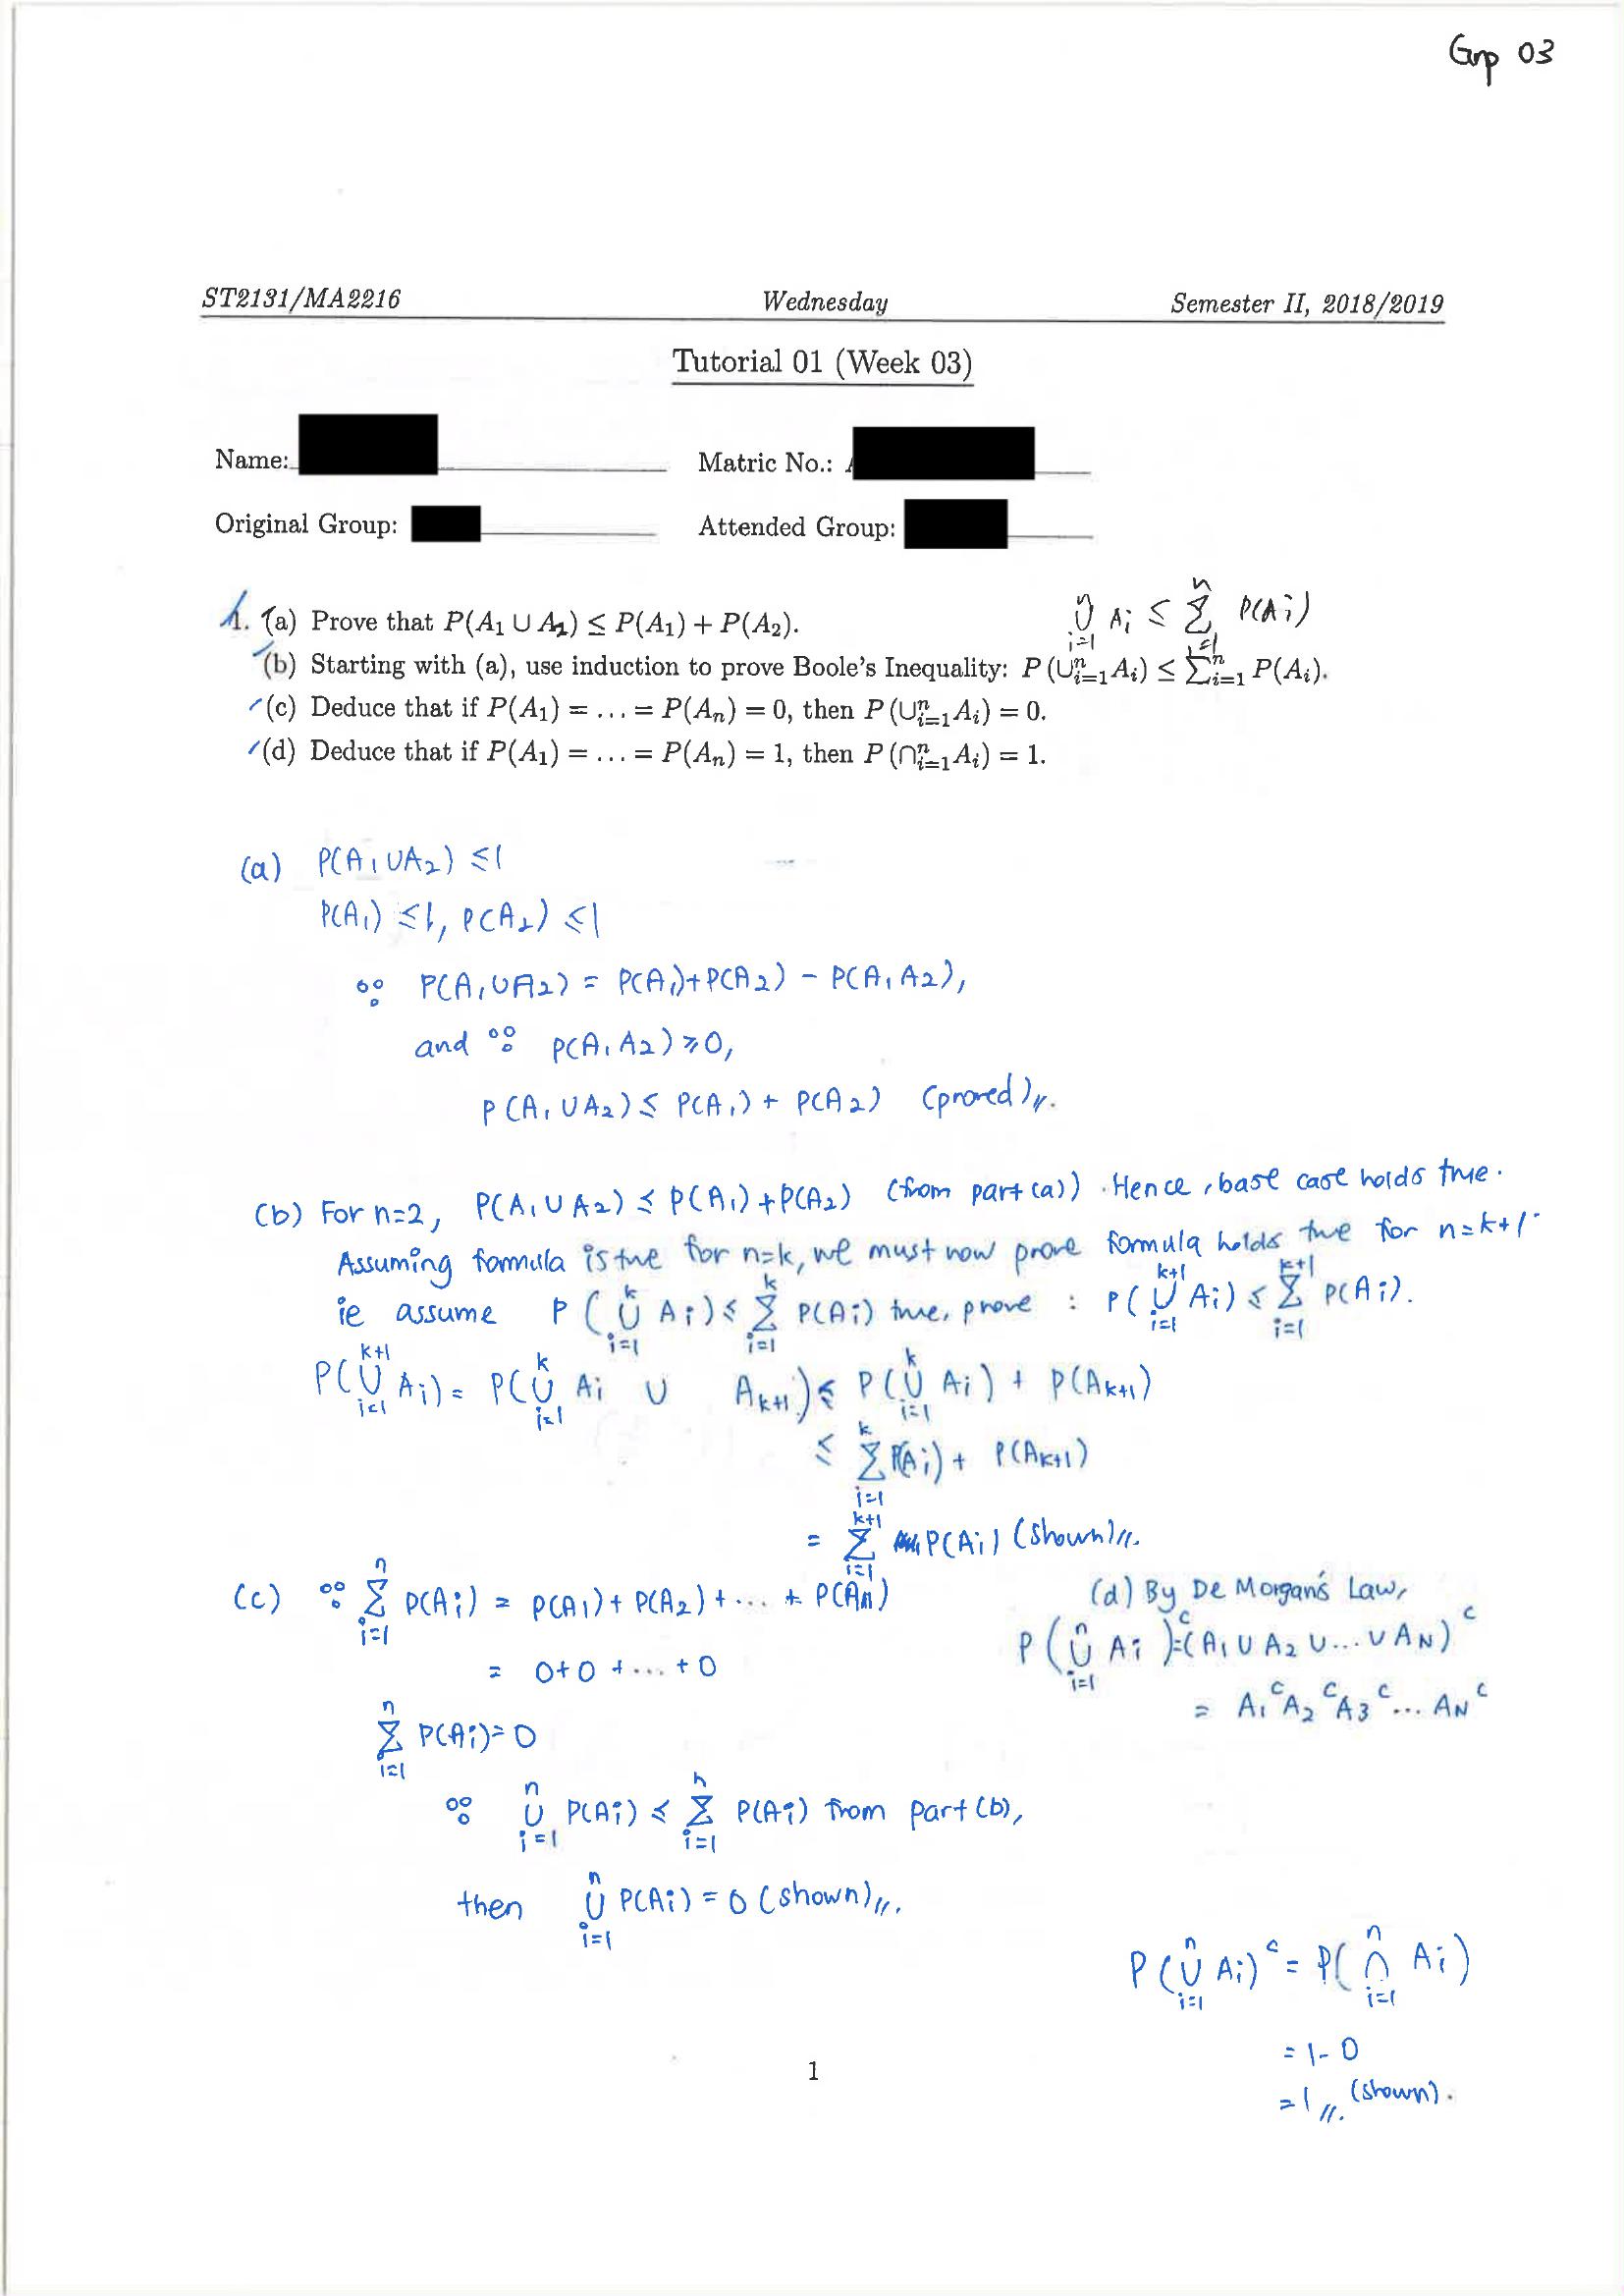 Grp 03
ST2131/MA2216 Wednesday Semester II, 2018/2019
Tutorial 01 (Week 03)
Name: Matric No.:
Original Group: Attended Group:
1. (a) Prove that P(A₁ ∪ A₂) ≤ P(A₁) + P(A₂).
n⋃i=1 Ai ≤ n∑i=1 P(Ai)
(b) Starting with (a), use induction to prove Boole's Inequality: P(∪ⁿᵢ₌₁Aᵢ) ≤ ∑ⁿᵢ₌₁ P(Aᵢ).
(c) Deduce that if P(A₁) = ... = P(Aₙ) = 0, then P(∪ⁿᵢ₌₁Aᵢ) = 0.
(d) Deduce that if P(A₁) = ... = P(Aₙ) = 1, then P(∩ⁿᵢ₌₁Aᵢ) = 1.
(a) P(A₁ ∪ A₂) ≤ 1
P(A₁) ≤ 1, P(A₂) ≤ 1
∵ P(A₁ ∪ A₂) = P(A₁) + P(A₂) - P(A₁A₂),
and ∵ P(A₁A₂) ≥ 0,
P(A₁ ∪ A₂) ≤ P(A₁) + P(A₂) (proved)//.
(b) For n=2, P(A₁ ∪ A₂) ≤ P(A₁) + P(A₂) (from part (a)). Hence, base case holds true.
Assuming formula is true for n=k, we must now prove formula holds true for n=k+1.
ie assume P(k⋃i=1 Ai) ≤ k∑i=1 P(Ai) true, prove : P(k+1⋃i=1 Ai) ≤ k+1∑i=1 P(Ai).
P(k+1⋃i=1 Ai) = P(k⋃i=1 Ai ∪ Ak+1) ≤ P(k⋃i=1 Ai) + P(Ak+1)
≤ k∑i=1 P(Ai) + P(Ak+1)
= k+1∑i=1 P(Ai) (shown)//.
(c) ∵ n∑i=1 P(Ai) = P(A₁) + P(A₂) + ... + P(An)
= 0+0+...+0
n∑i=1 P(Ai) = 0
∵ n⋃i=1 P(Ai) ≤ n∑i=1 P(Ai) from part (b),
then n⋃i=1 P(Ai) = 0 (shown)//.
(d) By De Morgan's Law,
P(n⋃i=1 Ai)ᶜ = (A₁ ∪ A₂ ∪ ... ∪ AN)ᶜ
= A₁ᶜA₂ᶜA₃ᶜ... ANᶜ
P(n⋃i=1 Ai)ᶜ = P(n⋂i=1 Ai)
= 1-0
= 1//. (shown).
1